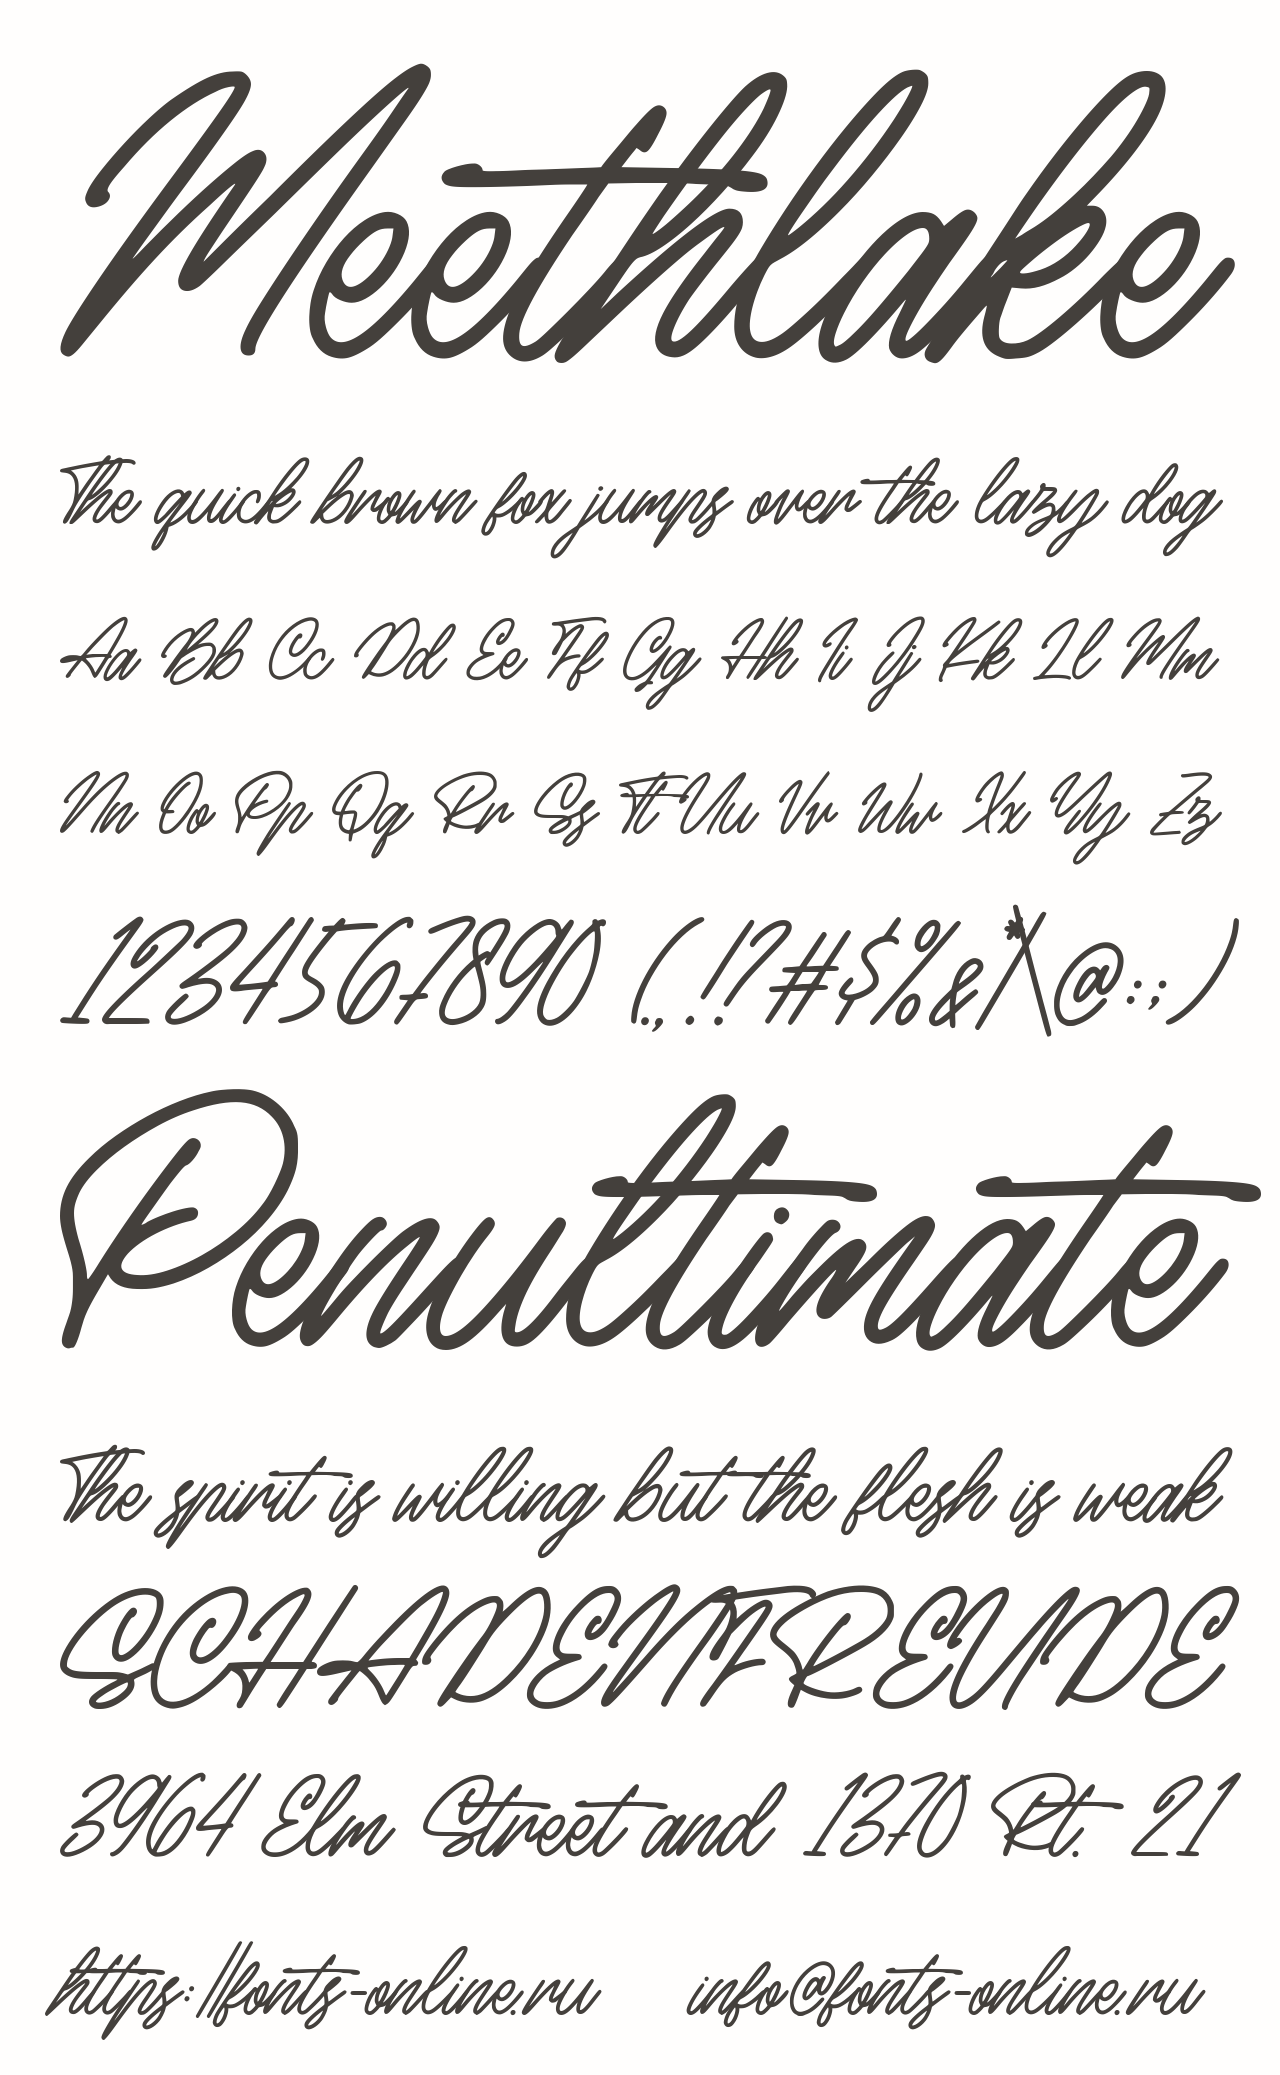 Meethlake
The quick brown fox jumps over the lazy dog
Aa Bb Cc Dd Ee Ff Gg Hh Ii Jj Kk Ll Mm
Nn Oo Pp Qq Rr Ss Tt Uu Vv Ww Xx Yy Zz
1234567890 (.,!?#$%&/*\@:;)
Penultimate
The spirit is willing but the flesh is weak
SCHADENFREUDE
3964 Elm Street and 1370 Rt. 21
https://fonts-online.ru info@fonts-online.ru